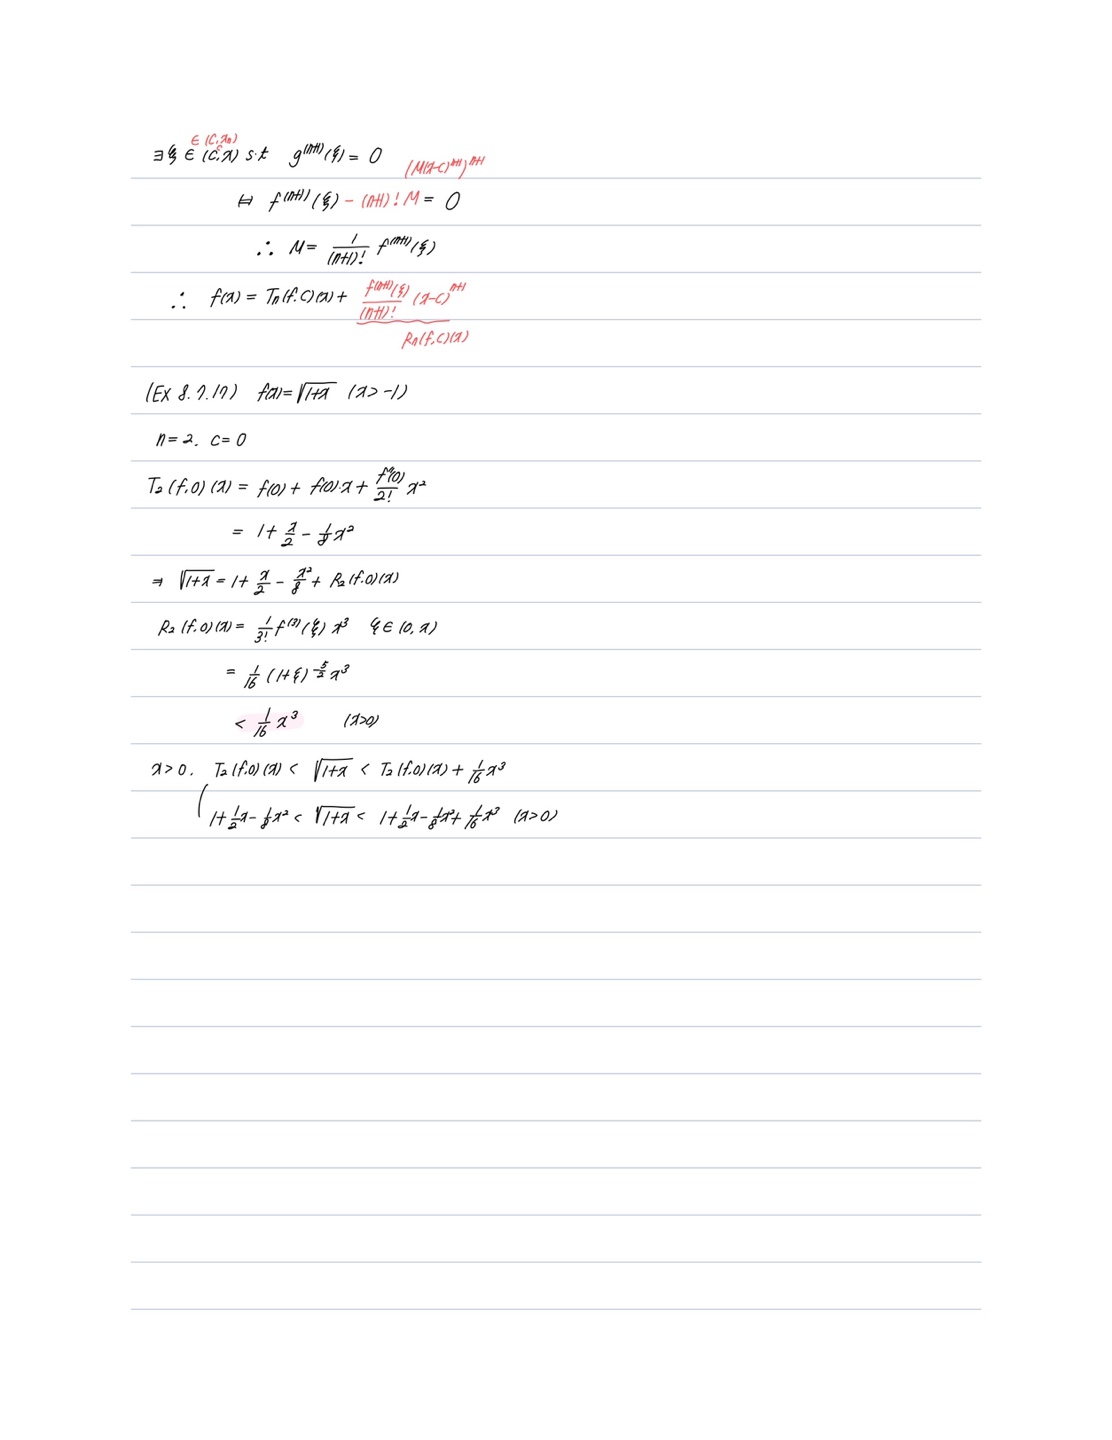 ∈ (C, x_n)
∃ξ ∈ (C, x) s.t g^(n+1)(ξ) = 0
(M(x-C)^{n+1})^{n+1}
⇔ f^(n+1)(ξ) - (n+1)! M = 0
∴ M = 1/(n+1)! f^(n+1)(ξ)
∴ f(x) = Tn(f.C)(x) + f^(n+1)(ξ)/(n+1)! (x-C)^{n+1}
Rn(f,C)(x)
(Ex 8.7.17) f(x) = √(1+x) (x > -1)
n = 2. c = 0
T₂(f,0)(x) = f(0) + f(0)·x + f''(0)/2! x²
= 1 + x/2 - 1/8 x²
⇒ √(1+x) = 1 + x/2 - x²/8 + R₂(f.0)(x)
R₂(f,0)(x) = 1/3! f^(3)(ξ) x³ ξ ∈ (0, x)
= 1/16 (1+ξ)^{-5/2} x³
< 1/16 x³ (x>0)
x > 0. T₂(f,0)(x) < √(1+x) < T₂(f,0)(x) + 1/16 x³
1 + 1/2 x - 1/8 x² < √(1+x) < 1 + 1/2 x - 1/8 x² + 1/16 x³ (x>0)